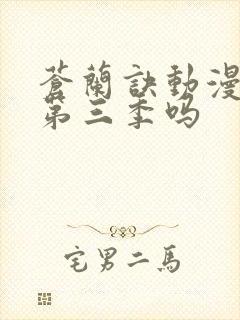 蒼蘭訣動漫
第三季吗
宅男二馬